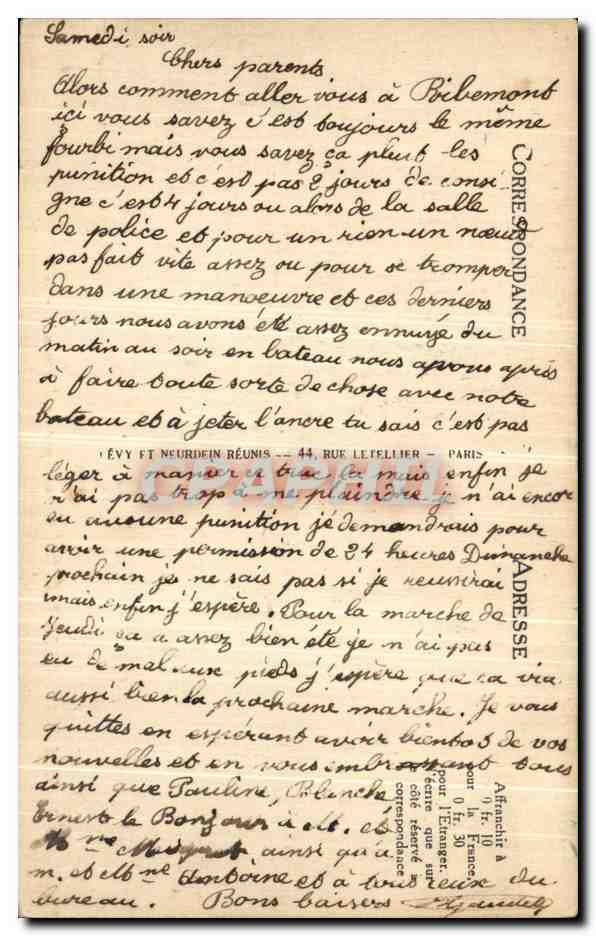 Samedi soir
Chers parents
Alors comment aller vous à Ribemont
ici vous savez c'est toujours le même
fourbi mais vous savez ça pleut les
punition et c'est pas 2 jours de consi
gne c'est 4 jours ou alors de la salle
de police et pour un rien un nœud
pas fait vite assez ou pour se tromper
dans une manoeuvre et ces derniers
jours nous avons été assez ennuyé du
matin au soir en bateau nous avons après
à faire toute sorte de chose avec notre
bateau et à jeter l'ancre tu sais c'est pas
LÉVY ET NEURDEIN RÉUNIS -- 44, RUE LETELLIER - PARIS
léger à manier ce truc la mais enfin je
n'ai pas trop à me plaindre j n'ai encor
eu aucune punition je demandrais pour
avoir une permission de 24 heures Dimanche
prochain je ne sais pas si je reussirai
mais enfin j'espère. Pour la marche de
jeudi ça a assez bien été je n'ai pas
eu de mal aux pieds j'espère que ca vra
aussi bien la prochaine marche. Je vous
quittes en espérant avoir bientot de vos
nouvelles et en vous embrassant tous
ainsi que Pauline, Blanche
Ernest le Bonjour à M. et
Mme ainsi qu'à
m. et Mme Antoine et à tous ceux du
bureau. Bons baisers
CORRESPONDANCE
ADRESSE
Affranchir à
0 fr. 10
pour la France,
0 fr. 30
pour l'Étranger.
N'écrire que sur
côté réservé à
correspondance